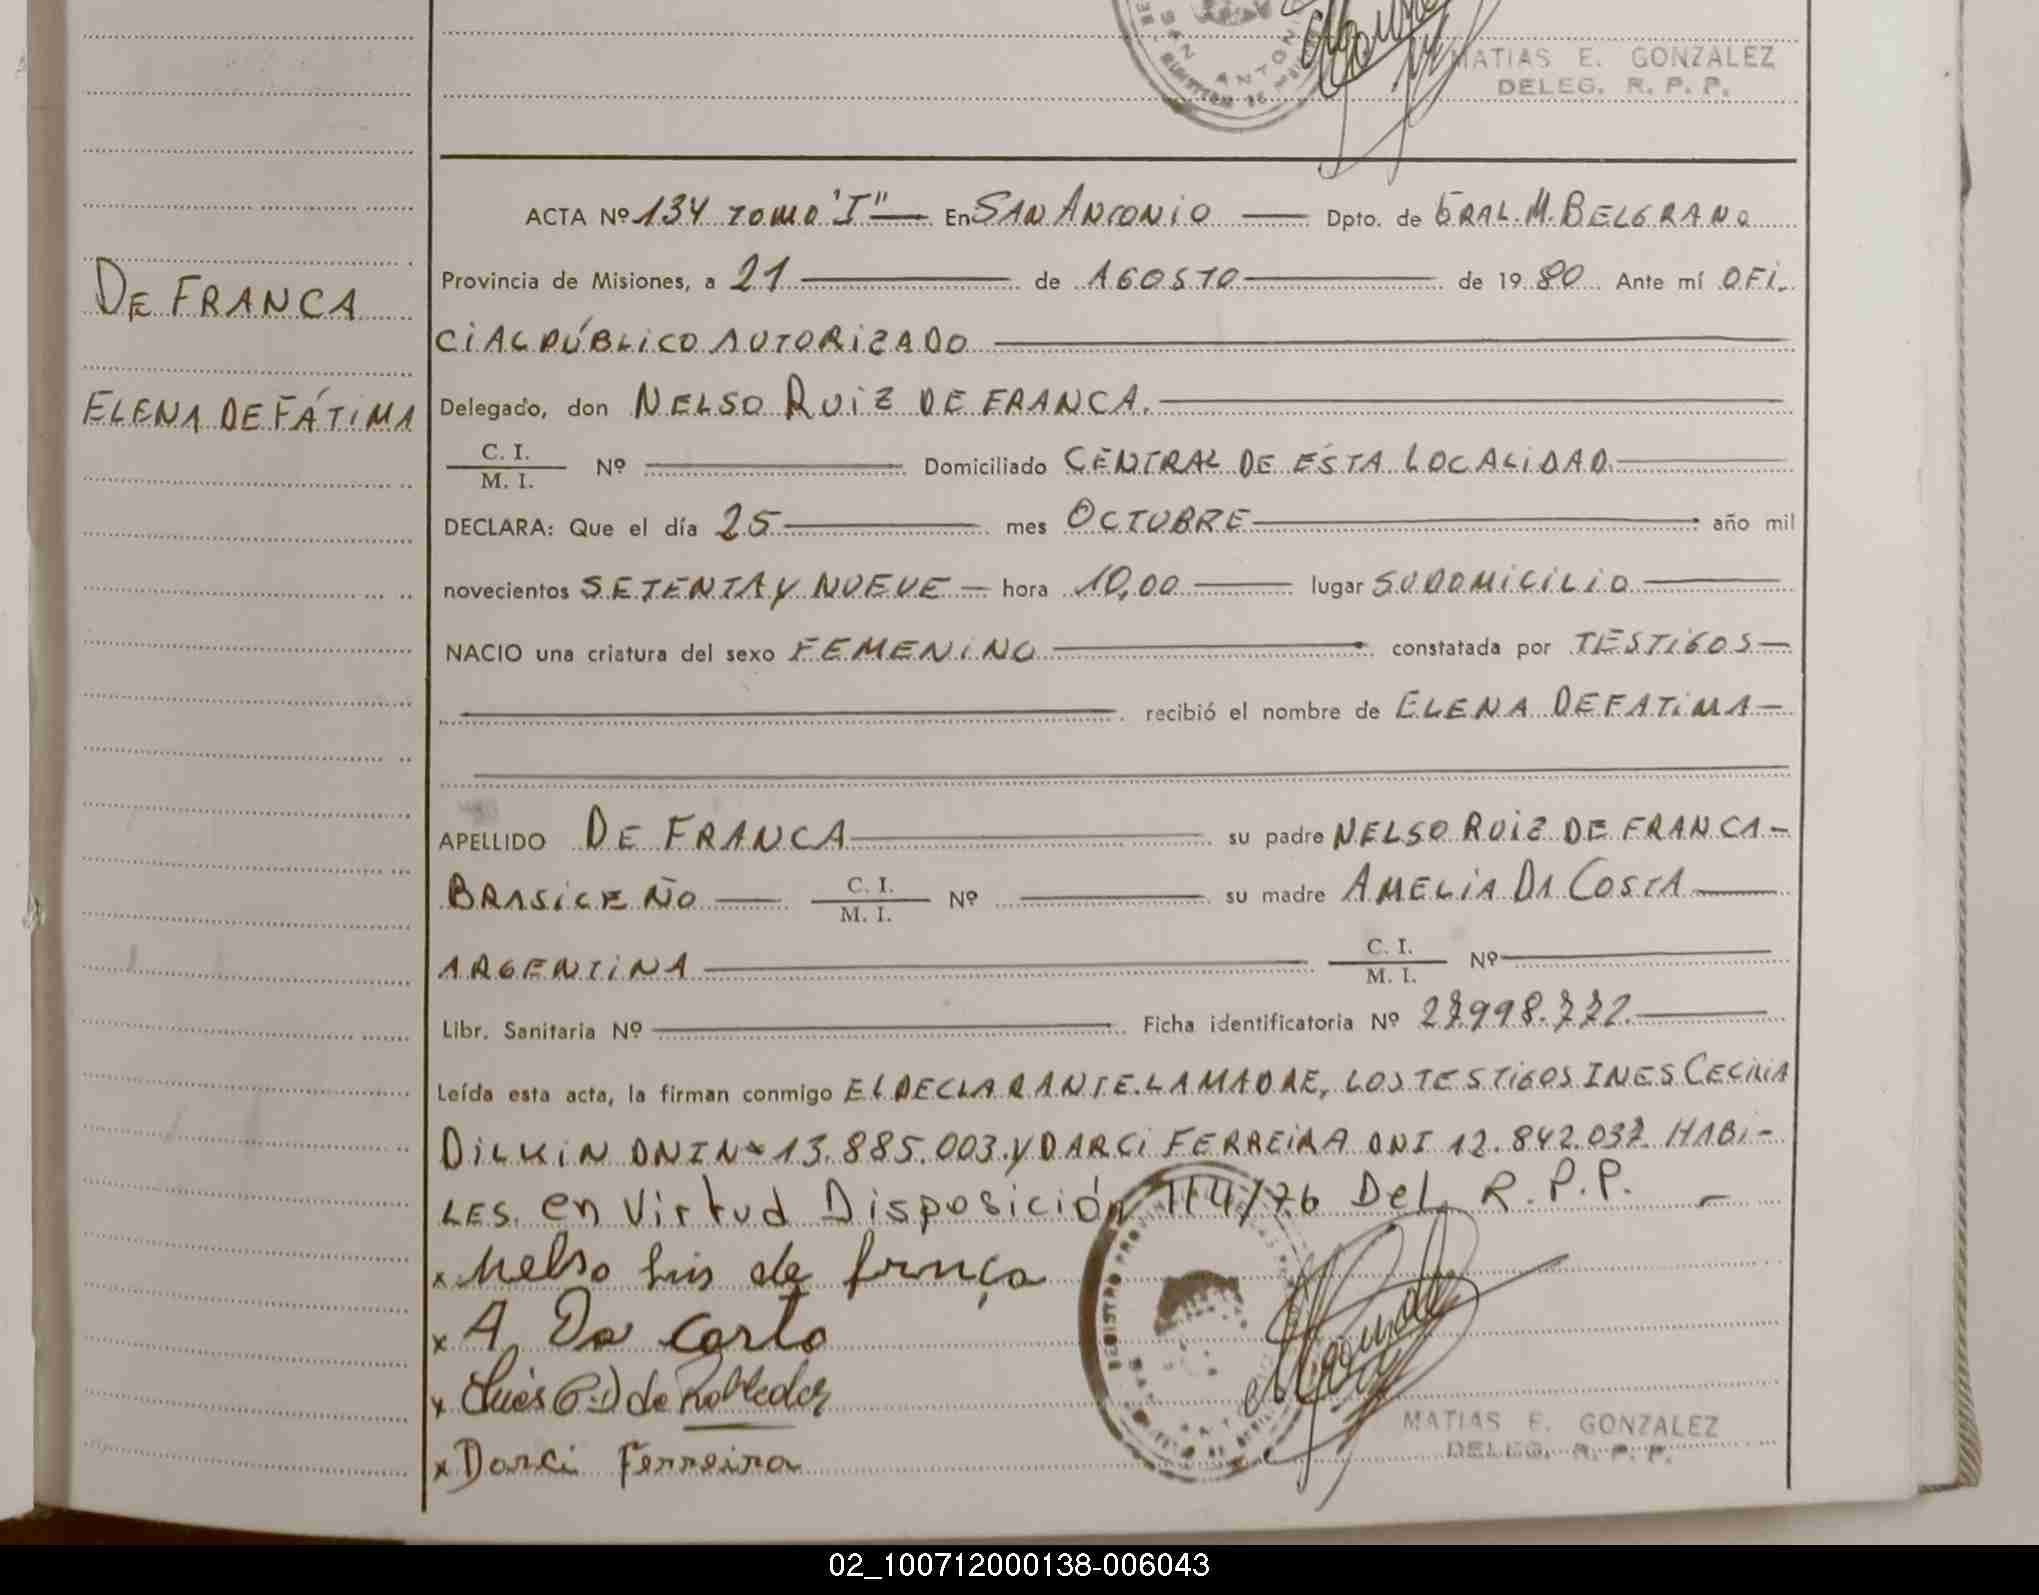 MATIAS E. GONZALEZ
DELEG. R. P. P.
ACTA Nº 134 TOMO "I" En SAN ANTONIO Dpto. de GRAL. M. BELGRANO
Provincia de Misiones, a 21 de AGOSTO de 1980 Ante mí OFI-
CIAL PÚBLICO AUTORIZADO
DE FRANCA
ELENA DE FÁTIMA
Delegado, don NELSO RUIZ DE FRANCA.
C. I.
M. I. Nº Domiciliado CENTRAL DE ESTA LOCALIDAD.
DECLARA: Que el día 25 mes OCTUBRE año mil
novecientos SETENTA Y NUEVE hora 10,00 lugar SU DOMICILIO
NACIO una criatura del sexo FEMENINO constatada por TESTIGOS
recibió el nombre de ELENA DE FATIMA
APELLIDO DE FRANCA su padre NELSO RUIZ DE FRANCA
BRASILEÑO C. I. M. I. Nº su madre AMELIA DA COSTA
ARGENTINA C. I. M. I. Nº
Libr. Sanitaria Nº Ficha identificatoria Nº 27.998.772.
Leída esta acta, la firman conmigo EL DECLARANTE. LA MADRE, LOS TESTIGOS INES CECILIA
DILKIN DNI Nº 13.885.003. Y DARCI FERREIRA DNI 12.842.037 HABI-
LES. en Virtud Disposición 114/76 Del R. P. P.
x Nelso Luis de França
x A. Da Costa
x Inés C. D de Robledo
x Darci Ferreira
MATIAS E. GONZALEZ
DELEG. R. P. P.
02_100712000138-006043